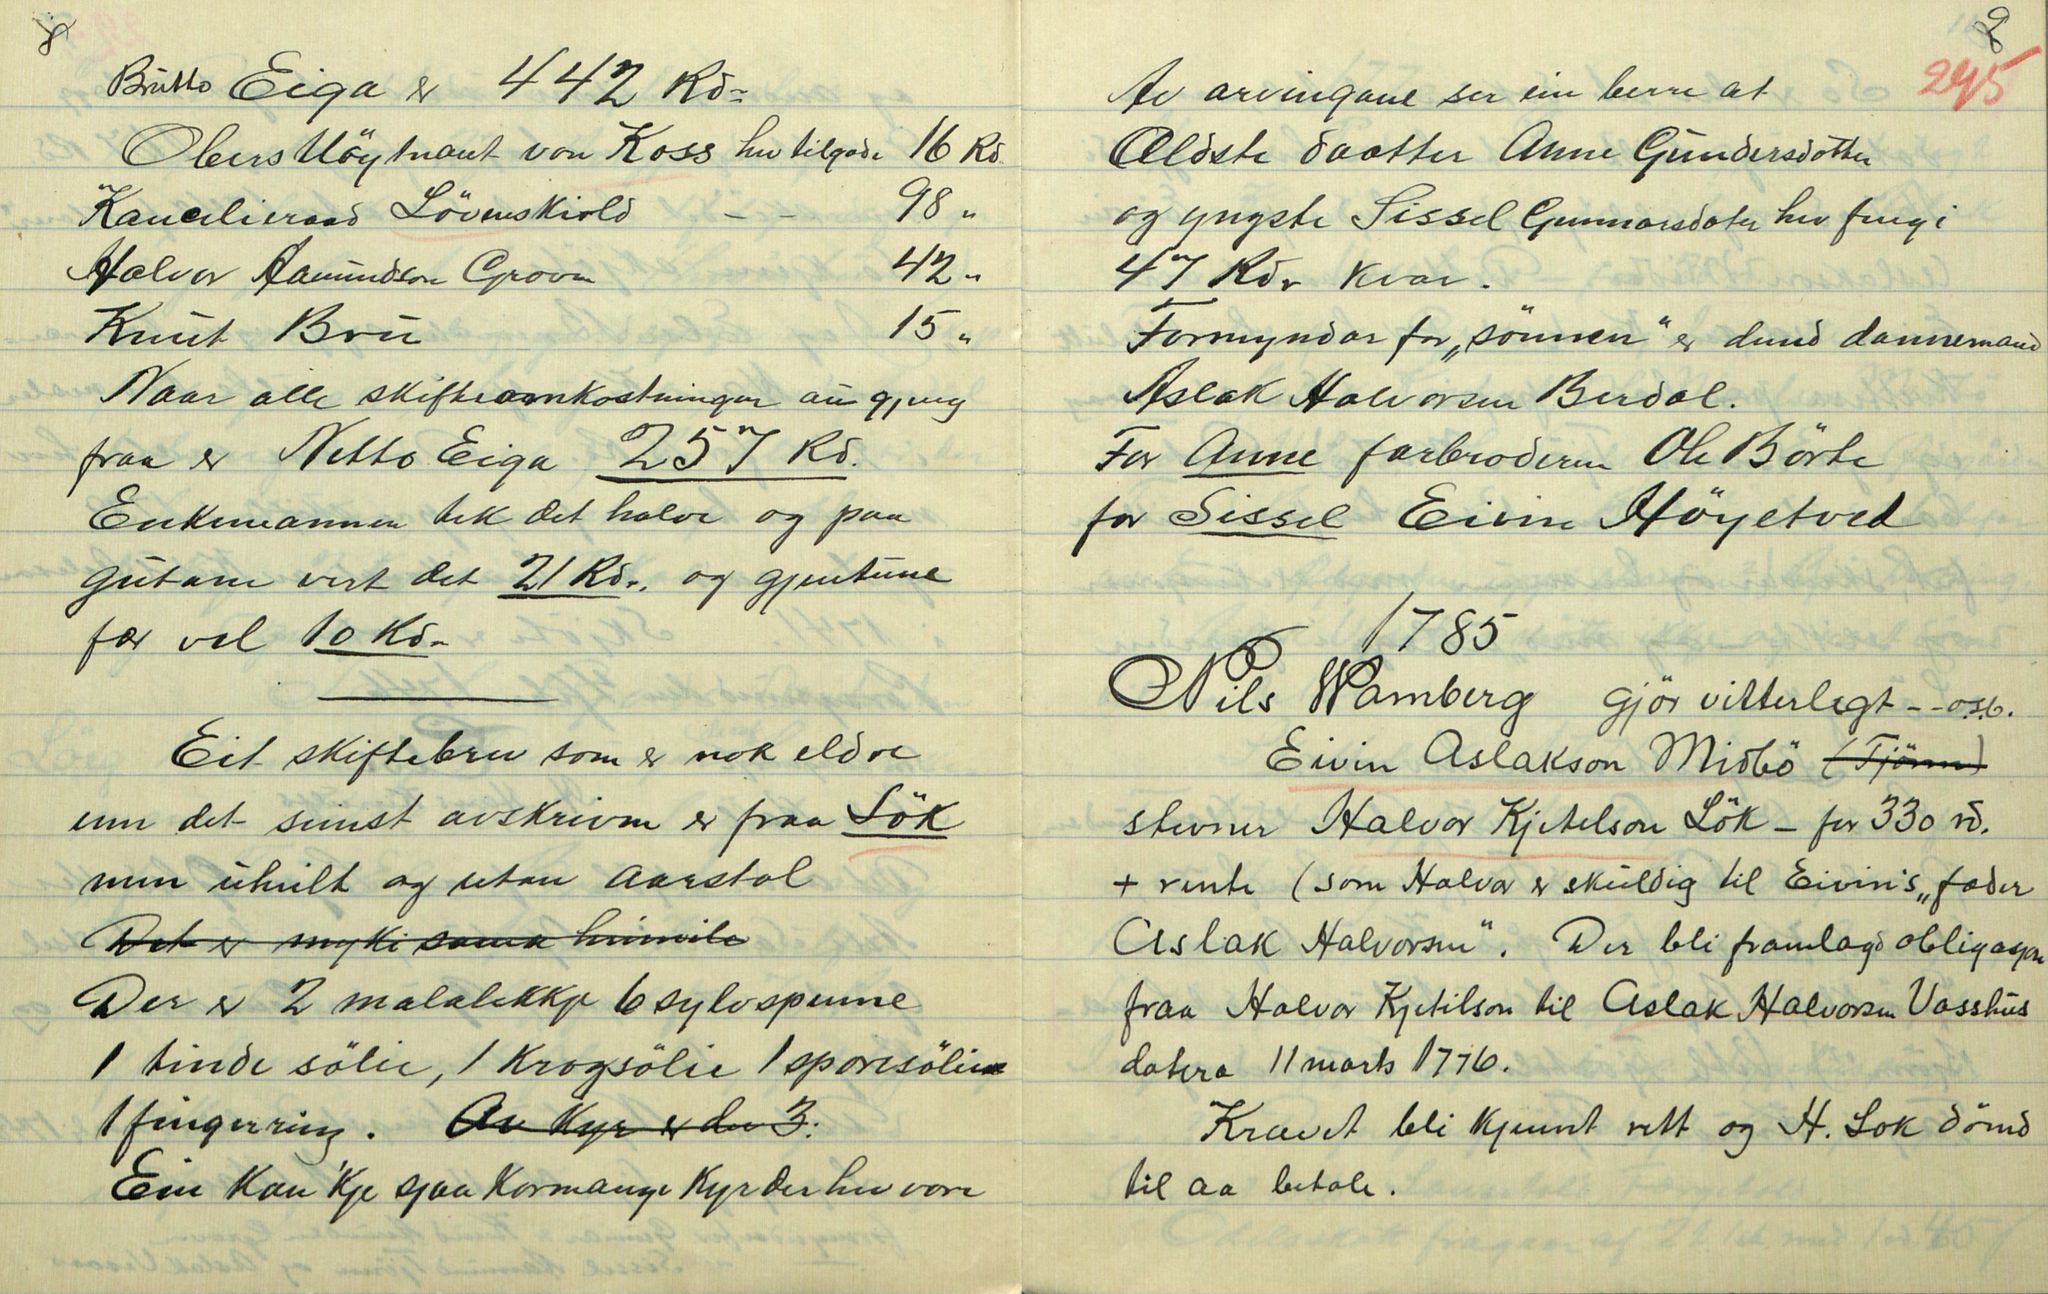 8
Brutto Eiga er 442 Rd-
Oberstlöytnant von Koss hev tilgode 16 Rd
Kancelieraad Lövenskiold - - 98 "
Halvor Aamundson Grovu 42 "
Knut Bru 15 "
Naar alle skifteomkostningar au gjeng
fraa er Netto Eiga 257 Rd.
Enkemannen tek det halve og paa
gutane vert det 21 Rd-. og gjentune
fær vel 10 Rd-
Eit skiftebrev som er nok eldre
enn det seinst avskrivne er fraa Lök
men uheilt og utan aarstal
Det er mykje sama
Der er 2 malalekkje 6 sylvspenne
1 tinde sölie, 1 Krogsölie 1 sporesölie
1 fingerring. Av Kyr er der 3.
Ein kan 'kje sjaa kormange kyr der hev vore
9
245
Av arvingane ser ein berre at
Ældste daatter Anne Gundersdotter
og yngste Sissel Gunnarsdoter hev fengi
47 Rd. kvar.
Formyndar for „sönnen“ er dend dannemand
Aslak Halvorsen Berdal.
For Anne farbroderen Ole Börte
for Sissel Eivin Höyetved
1785
Nils Wamberg gjör vitterlegt - - o.s.b.
Eivin Aslakson Midbö (Tjönn)
stevner Halvor Kjetelson Lök - for 330 rd.
+ rente (som Halvor er skuldig til Eivin's „fader
Aslak Halvorsen“. Der bli framlagd obligasjon
fraa Halvor Kjetilson til Aslak Halvorsen Vasshus
datera 11 marts 1776.
Kravet bli kjennt rett og H. Lok dömd
til aa betale.